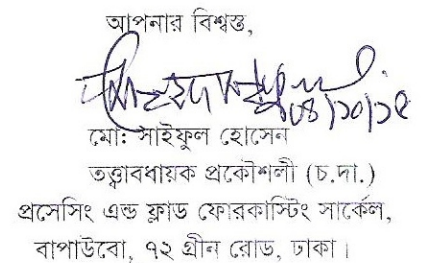 আপনার বিশ্বস্ত,
০৪/১০/১৫
মোঃ সাইফুল হোসেন
তত্ত্বাবধায়ক প্রকৌশলী (চ.দা.)
প্রসেসিং এন্ড ফ্লাড ফোরকাস্টিং সার্কেল,
বাপাউবো, ৭২ গ্রীন রোড, ঢাকা।